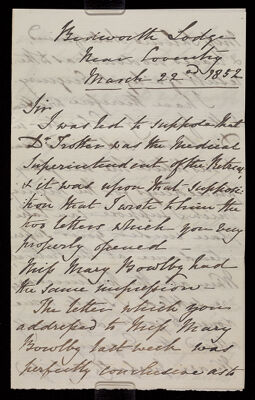 Bedworth Lodge
Near Coventry
March 22nd 1852
Sir
I was led to suppose that
Dr Trotter was the Medical
Superintendent of the Retreat
& it was upon that supposi-
tion that I wrote to him the
two letters which you very
properly opened —
Miss Mary Bowlby had
the same impression —
The letter which you
addressed to Miss Mary
Bowlby last week was
perfectly conclusive as to